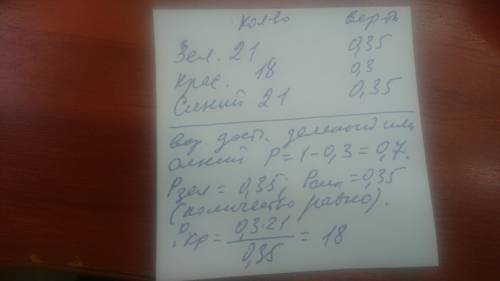 Кол-во Вер-ть
Зел. 21 0,35
Крас. 18 0,3
Синий 21 0,35
дост. зеленый или
синий P = 1 - 0,3 = 0,7.
Pзел = 0,35; Pсин = 0,35
(количество равно).
кр = 0,3·21 / 0,35 = 18